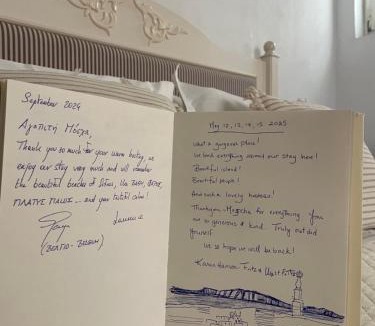 September 2024
Αγαπητή Μόσχα,
Thank you so much for your warm hosting, we
enjoy our stay very much and will remember
the beautiful beaches of Sifnos, like
ΠΛΑΤΥΣ ΓΙΑΛΟΣ ... and your tasteful cakes!
(ΒΕΛΓΙΟ - BELGIUM)
May 12, 13, 14, 15 2025
What a gorgeous place!
We loved everything around our stay here!
Beautiful island!
Beautiful people!
And such a lovely hostess!
Thank you for everything. You
are so generous & kind. Truly out did
yourself
We so hope we will be back!
Karen